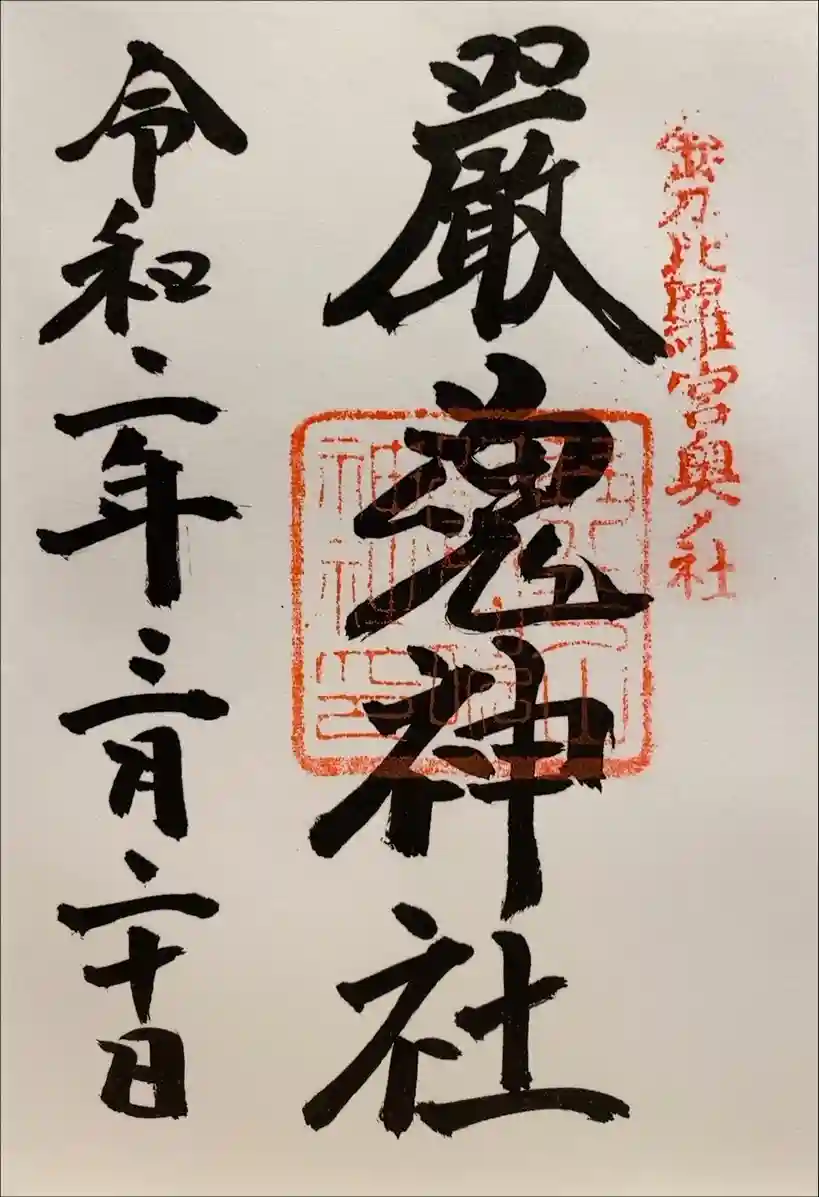 金刀比羅宮奥ノ社
厳魂神社
令和二年三月二十日